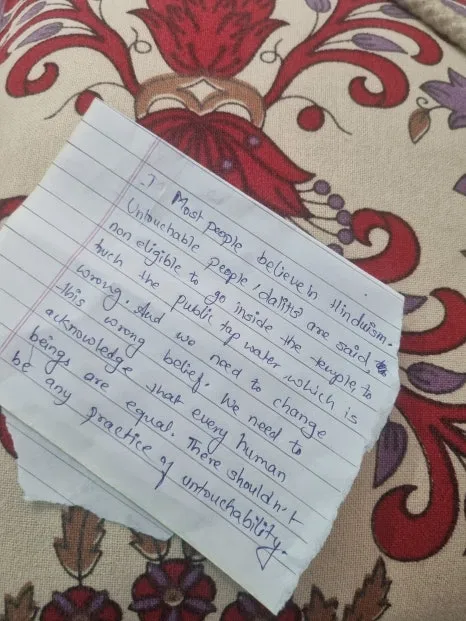 -7 Most people believe in Hinduism.
Untouchable people/dalits are said to
non eligible to go inside the temple, to
tuch the public tap water which is
wrong. And we need to change
this wrong belief. We need to
acknowledge that every human
beings are equal. There shouldn't
be any practice of untouchability.